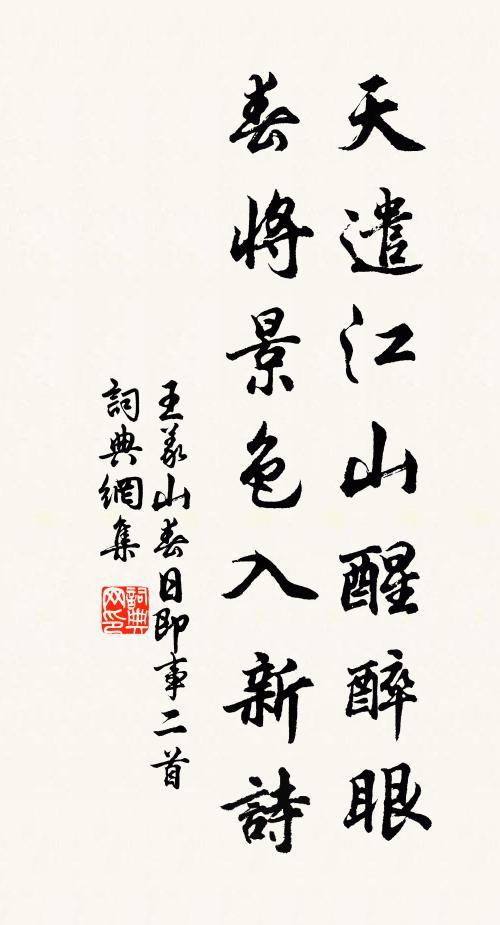 天遣江山醒醉眼
春將景色入新詩
王義山春日即事二首
詞典網集
詞典
网印